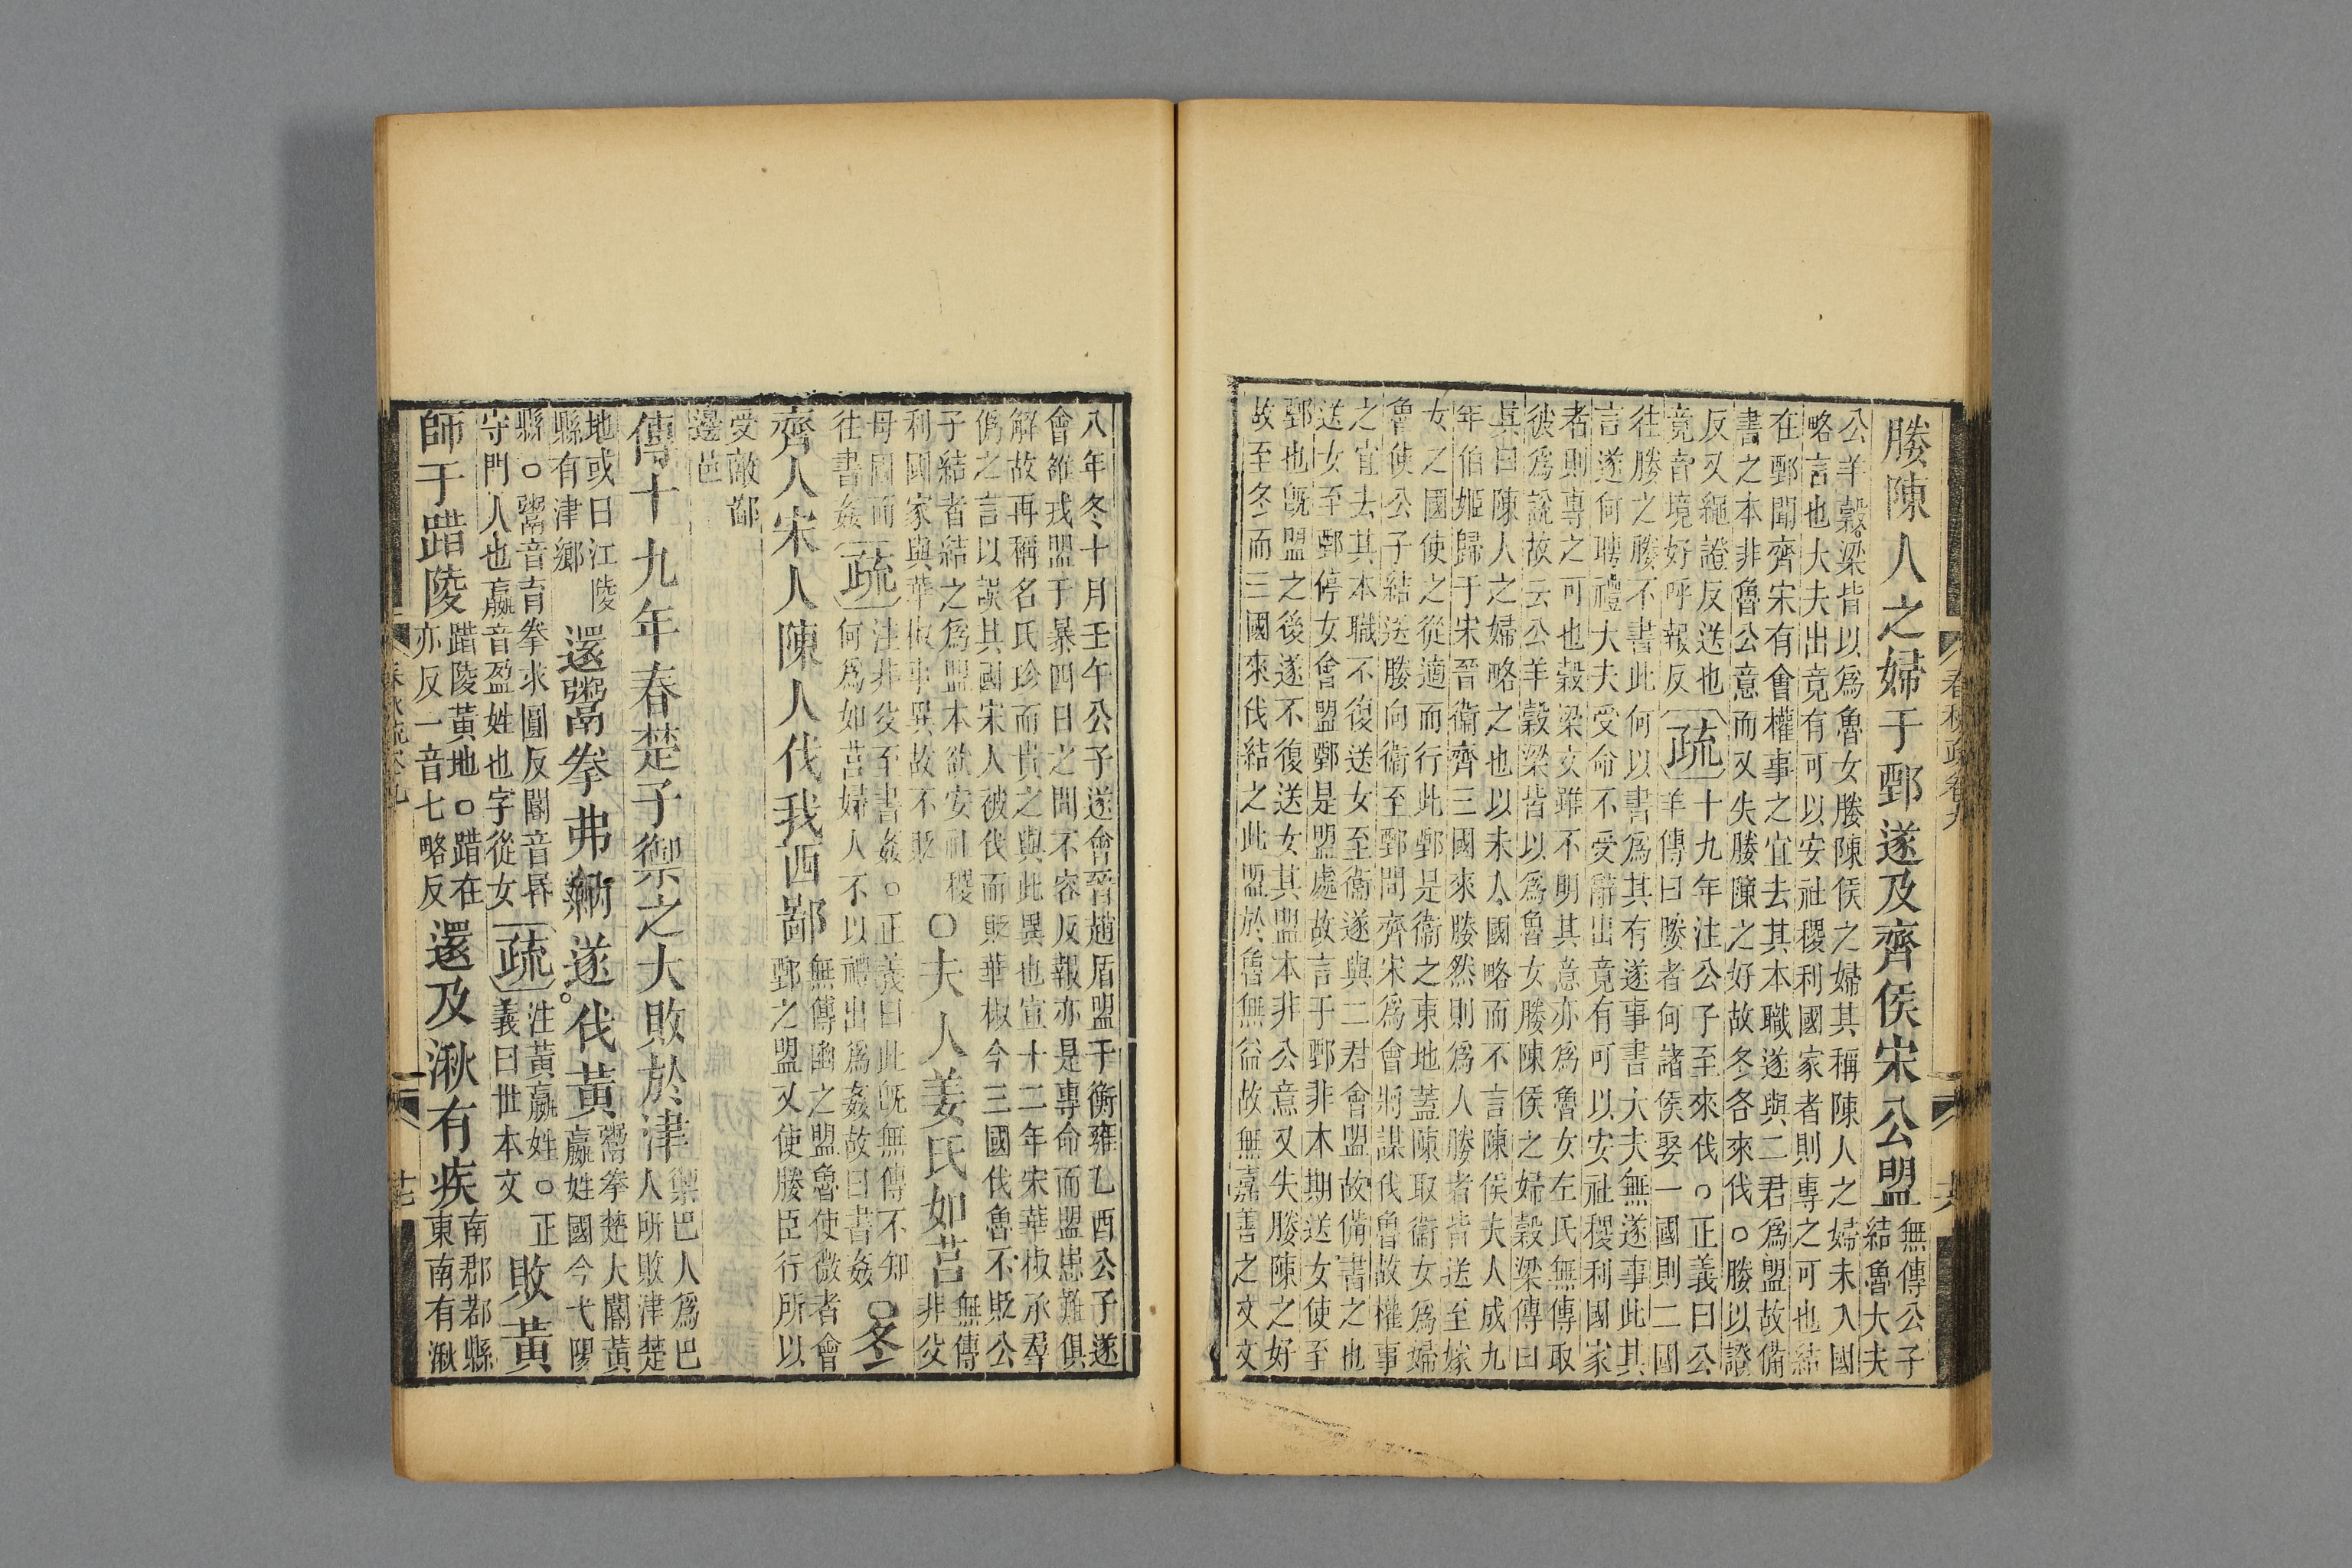 春秋疏卷九
媵陳人之婦于鄄遂及齊侯宋公盟 無傳公子
結魯大夫
公羊穀梁皆以爲魯女媵陳侯之婦其稱陳人之婦未入國
略言也大夫出竟有可以安社稷利國家者則專之可也結
在鄄聞齊宋有會權事之宜去其本職遂與二君爲盟故備
書之本非魯公意而又失媵陳之好故冬各來伐○媵以證
反又繩證反送也
竟音境好呼報反
疏
十九年注公子至來伐○正義曰公
羊傳曰媵者何諸侯娶一國則二國
往媵之媵不書此何以書爲其有遂事書大夫無遂事此其
言遂何聘禮大夫受命不受辭出竟有可以安社稷利國家
者則專之可也穀梁文雖不明其意亦爲魯女左氏無傳取
彼爲說故云公羊穀梁皆以爲魯女媵陳侯之婦穀梁傳曰
其曰陳人之婦略之也以未入國略而不言陳侯夫人成九
年伯姬歸于宋晉衞齊三國來媵然則爲人媵者皆送至嫁
女之國使之從適而行此鄄是衞之東地蓋陳取衞女爲婦
魯使公子結送媵向衞至鄄問齊宋爲會將謀伐魯故權事
之宜去其本職不復送女至衞遂與二君會盟故備書之也
送女至鄄停女會盟鄄是盟處故言于鄄非本期送女使至
鄄也旣盟之後遂不復送女其盟本非公意又失媵陳之好
故至冬而三國來伐結之此盟於魯無益故無嘉善之文文
八年冬十月壬午公子遂會晉趙盾盟于衡雍乙酉公子遂
會雒戎盟于暴四日之間不容反報亦是專命而盟患難俱
解故再稱名氏珍而貴之與此異也宣十二年宋華椒承羣
僞之言以誤其國宋人被伐而貶華椒今三國伐魯不貶公
子結者結之爲盟本欲安社稷
利國家與華椒事異故不貶
○夫人姜氏如莒
無傳
非父
母國而
往書姦
疏
注非父至書姦○正義曰此旣無傳不知
何爲如莒婦人不以禮出爲姦故曰書姦
○冬
齊人宋人陳人伐我西鄙
無傳幽之盟魯使微者會
鄄之盟又使媵臣行所以
受敵鄙
邊邑
傳十九年春楚子禦之大敗於津
禦巴人爲巴
人所敗津楚
地或曰江陵
縣有津鄉
還鬻拳弗納遂伐黃
鬻拳楚大閽黃
嬴姓國今弋陽
縣○鬻音育拳求圓反閽音昬
守門人也嬴音盈姓也字從女
疏
注黃嬴姓○正
義曰世本文
敗黃
師于踖陵
踖陵黃地○踖在
亦反一音七略反
還及湫有疾
南郡鄀縣
東南有湫
春秋疏卷九